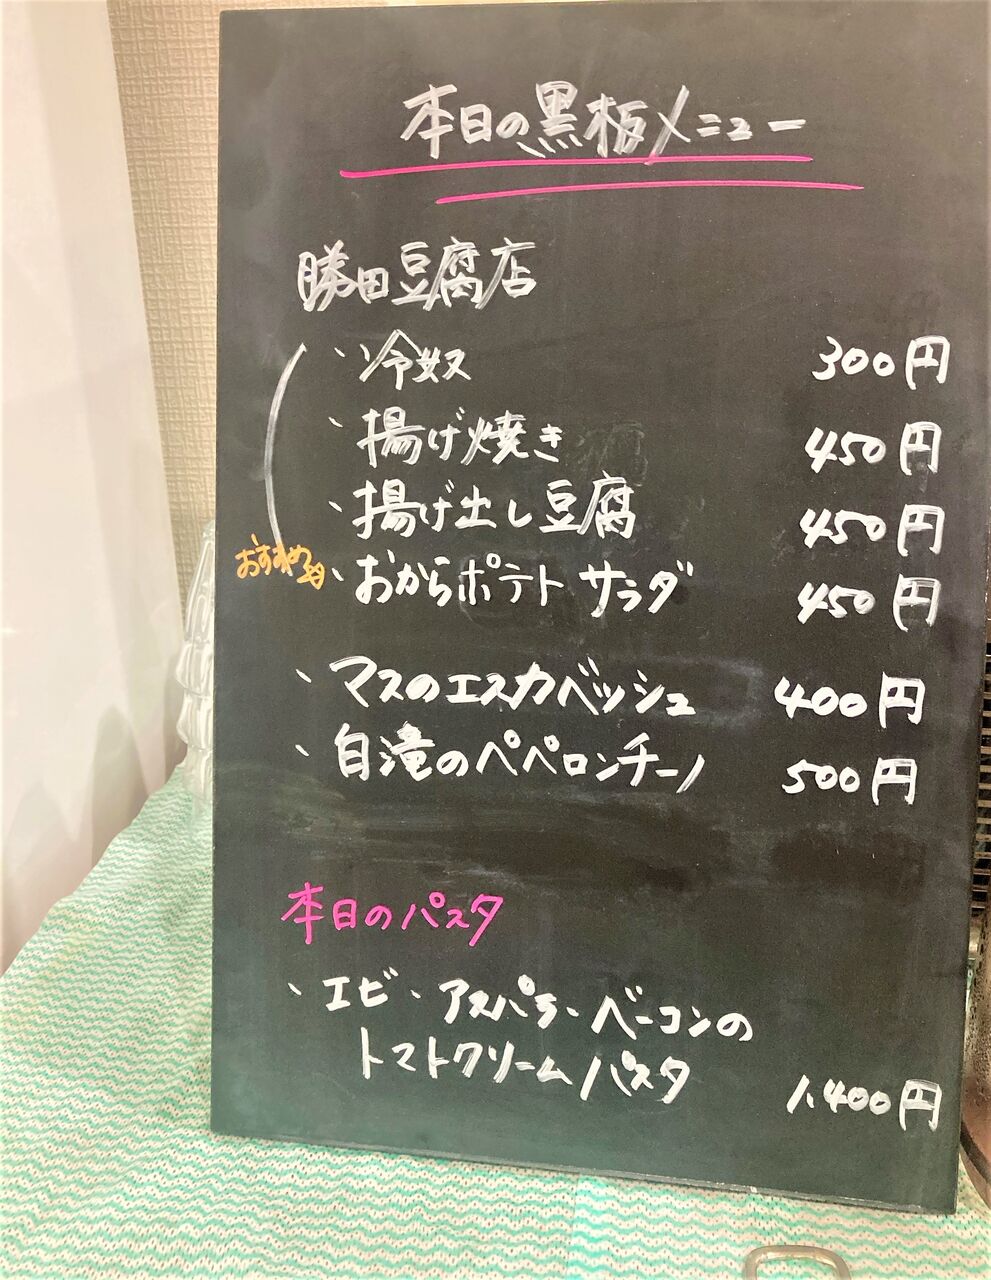 本日の黒板メニュー
勝田豆腐店
・冷奴 300円
・揚げ焼き 450円
・揚げ出し豆腐 450円
おすすめ ・おからポテトサラダ 450円
・マスのエスカベッシュ 400円
・白滝のペペロンチーノ 500円
本日のパスタ
・エビ・アスパラ・ベーコンの
トマトクリームパスタ 1,400円